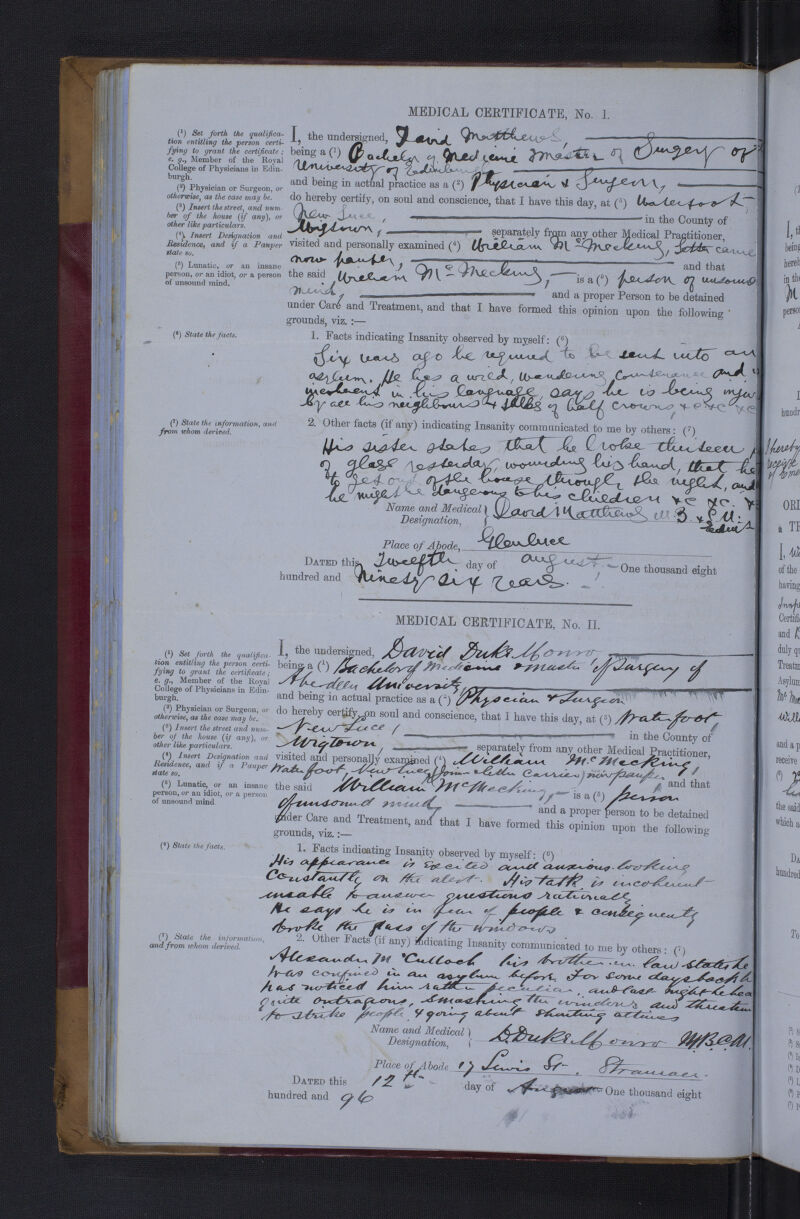 MEDICAL CERTIFICATE, No. I.
(¹) Set forth the qualifica-
tion entitling the person certi-
fying to grant the certificate;
e. g., Member of the Royal
College of Physicians in Edin-
burgh.
(²) Physician or Surgeon, or
otherwise, as the case may be.
(³) Insert the street, and num-
ber of the house (if any), or
other like particulars.
(⁴) Insert Designation and
Residence, and if a Pauper
state so.
(⁵) Lunatic, or an insane
person, or an idiot, or a person
of unsound mind.
I, the undersigned, David Matthews,
being a (¹) Bachelor of Medicine Master of Surgery of
University of Edinburgh
and being in actual practice as a (²) Physician & Surgeon,
do hereby certify, on soul and conscience, that I have this day, at (³) Waterfoot,
New Luce, in the County of
Wigtown, separately from any other Medical Practitioner,
visited and personally examined (⁴) William McMecking, letter
now pauper, and that
the said William McMecking, is a (⁵) person of unsound
mind, and a proper Person to be detained
under Care and Treatment, and that I have formed this opinion upon the following
grounds, viz. :—
(⁶) State the facts.
1. Facts indicating Insanity observed by myself: (⁶)
Six years ago he required to be sent into an
asylum. He has a wild, wandering countenance and is
incoherent in his language, says he is being
by all his neighbours & talks of half crowns &c &c &c
(⁷) State the information, and
from whom derived.
2. Other facts (if any) indicating Insanity communicated to me by others: (⁷)
His sister states that he broke thirteen
of glass yesterday, wounding his hand, that he
to get out of the house through the night, and
he might be dangerous to his children &c &c. &
Name and Medical Designation, David Matthews M B & C M.
Place of Abode, Glenluce
DATED this Twelfth day of August One thousand eight
hundred and Ninety six years.
MEDICAL CERTIFICATE, No. II.
(¹) Set forth the qualifica-
tion entitling the person certi-
fying to grant the certificate;
e. g., Member of the Royal
College of Physicians in Edin-
burgh.
(²) Physician or Surgeon, or
otherwise, as the case may be.
(³) Insert the street and num-
ber of the house (if any), or
other like particulars.
(⁴) Insert Designation and
Residence, and if a Pauper
state so.
(⁵) Lunatic, or an insane
person, or an idiot, or a person
of unsound mind
I, the undersigned, David Duke Monro
being a (¹) Bachelor of Medicine & Master of Surgery of
Aberdeen University
and being in actual practice as a (²) Physician & Surgeon
do hereby certify, on soul and conscience, that I have this day, at (³) Waterfoot,
New Luce, in the County of
Wigtown, separately from any other Medical Practitioner,
visited and personally examined (⁴) William McMecking,
Waterfoot, New Luce, letter carrier, now pauper and that
the said William McMecking, is a (⁵) person
of unsound mind, and a proper person to be detained
under Care and Treatment, and that I have formed this opinion upon the following
grounds, viz. :—
(⁶) State the facts.
1. Facts indicating Insanity observed by myself: (⁶)
His appearance is excited and anxious looking
Constantly on the alert. His talk is incoherent
unable to answer questions rationally
He says he is in fear of people & consequently
broke the glass of the windows
(⁷) State the information,
and from whom derived.
2. Other Facts (if any) indicating Insanity communicated to me by others: (⁷)
Alexander McCulloch his brother in law states he
was confined in an asylum before. For some days back he
has noticed him rather peculiar, and last night he
quite outrageous, smashing the windows and
to strike people & going about shouting at times
Name and Medical Designation, D. Duke Monro M.B.C.M.
Place of Abode 17 Lewis St. Stranraer.
DATED this 12th day of August One thousand eight
hundred and 96